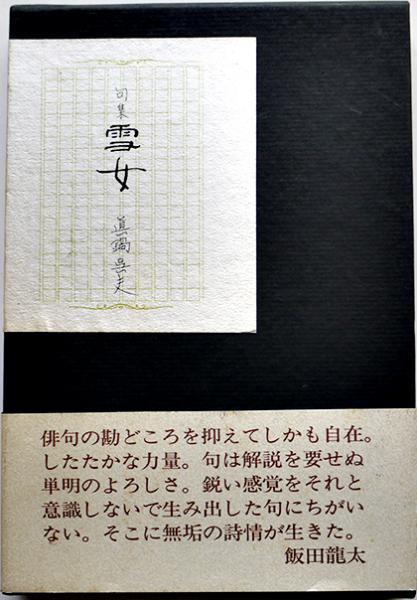 句集
雪女
眞鍋呉夫
俳句の勘どころを抑えてしかも自在。
したたかな力量。句は解説を要せぬ
単明のよろしさ。鋭い感覚をそれと
意識しないで生み出した句にちがい
ない。そこに無垢の詩情が生きた。
飯田龍太